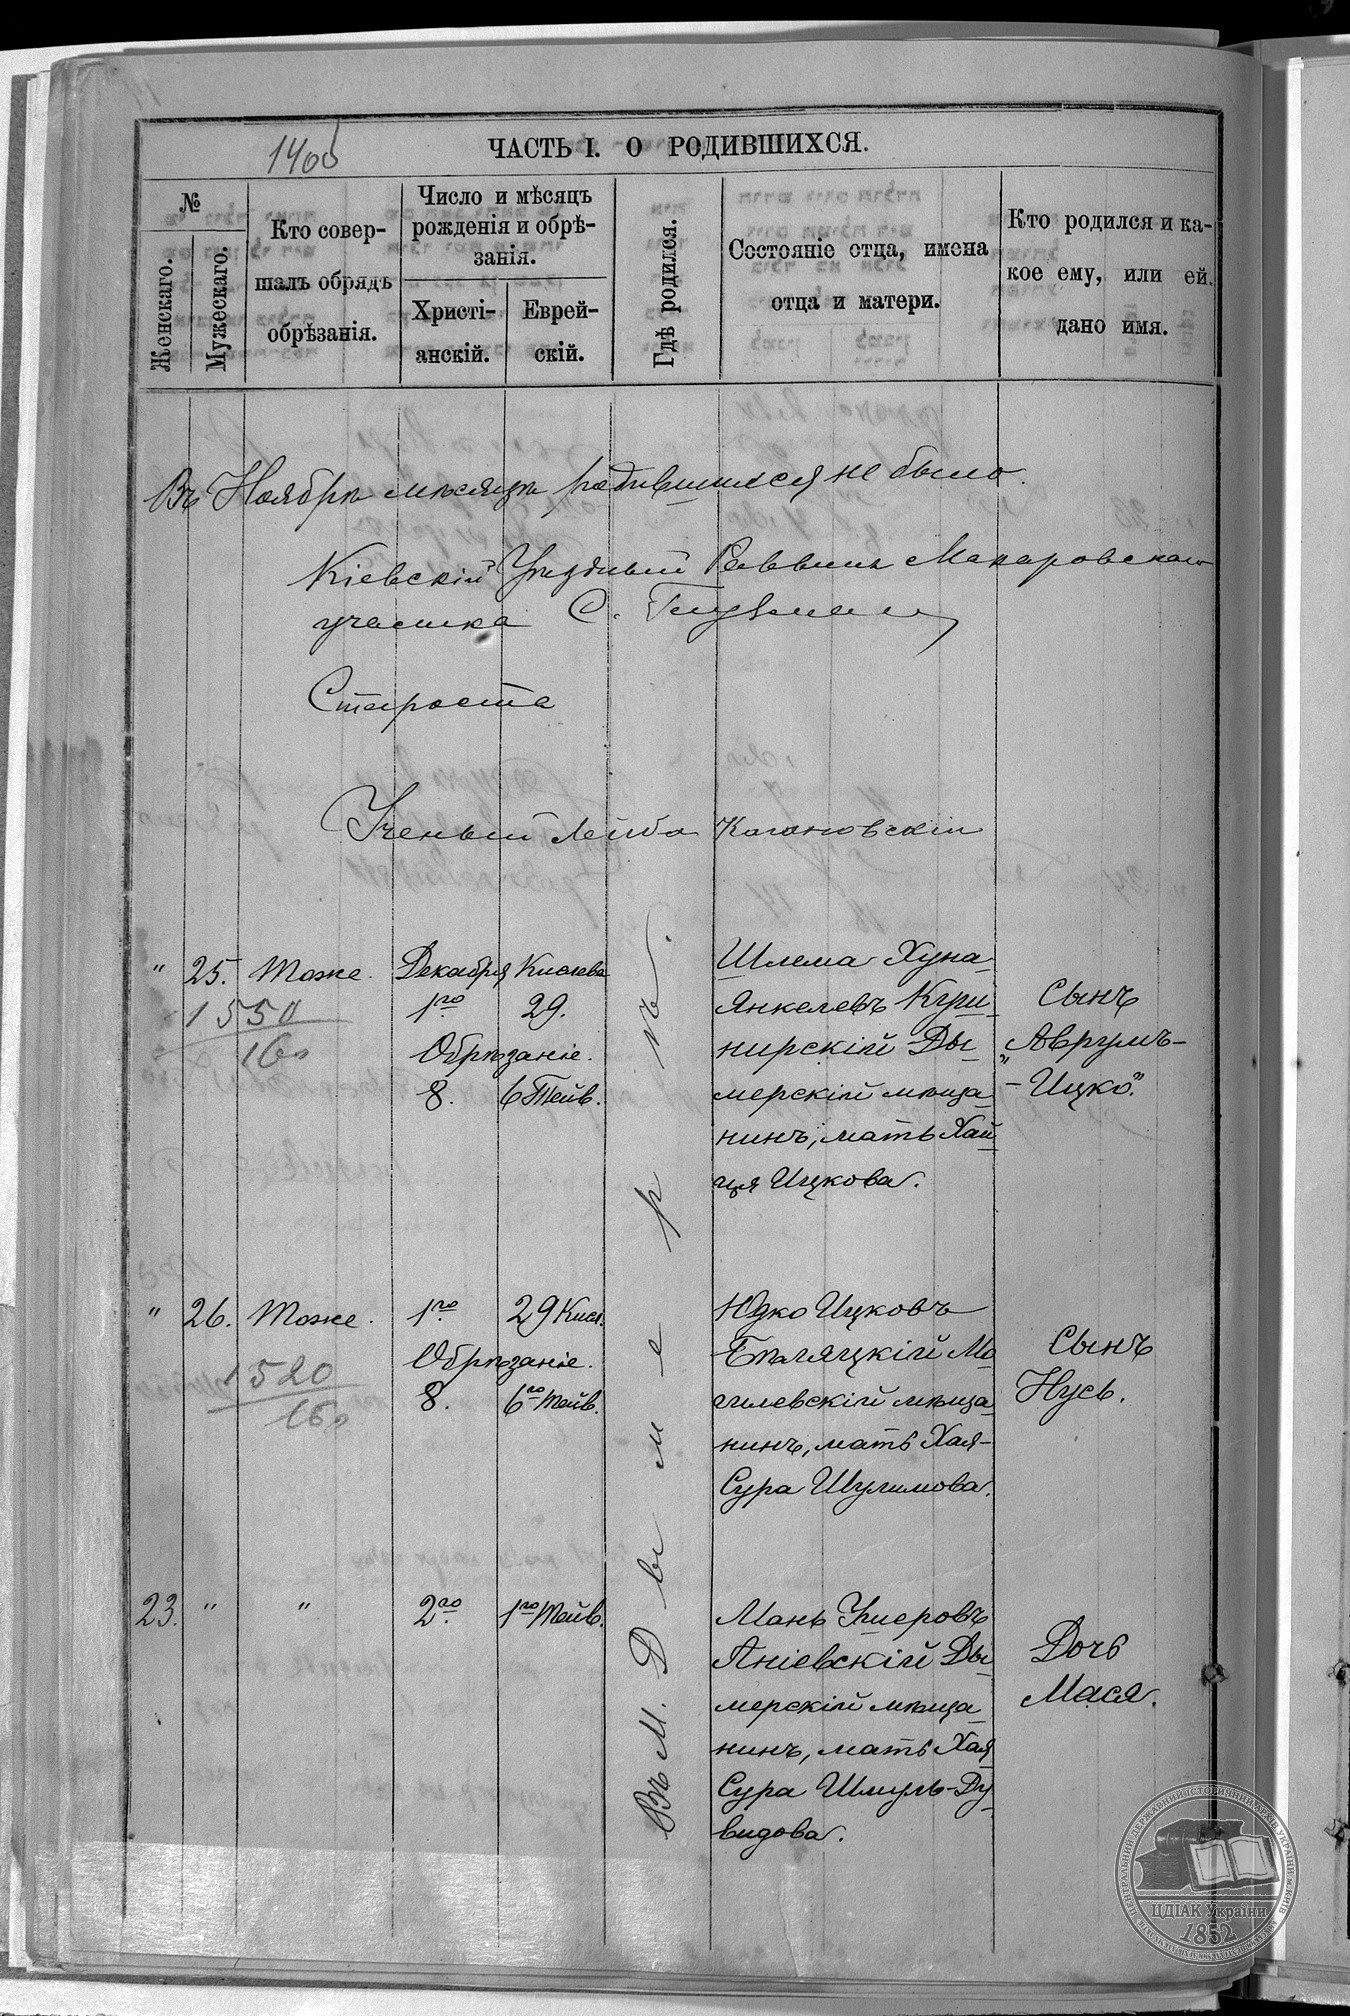 1400
ЧАСТЬ I. О РОДИВШИХСЯ.
№
Женскаго.
Мужескаго.
Кто совер-
шалъ обрядъ
обрѣзанія.
Число и мѣсяцъ
рожденія и обрѣ-
занія.
Христі-
анскій.
Еврей-
скій.
Гдѣ родился.
Состояніе отца, имена
отца и матери.
Кто родился и ка-
кое ему, или ей
дано имя.
Въ Ноябрѣ мѣсяцѣ родившихся не было.
Кіевскій Уѣздный Раввинъ Макаровскаго
участка С.
Староста
Ученый Лейба Кагановскій
Въ М. Дымерѣ.
" 25. Тоже. Декабря Кислева
1го 29.
Обрѣзаніе.
8. 6 Тейв.
1550
160
Шлема Хуна-
Янкелевъ Куш-
нирскій Ды-
мерскій мѣща-
нинъ, мать Хай-
ця Ицкова.
Сынъ
„Аврумъ-
- Ицко".
" 26. Тоже. 1го 29 Кисл.
Обрѣзаніе.
8. 6го Тейв.
1520
160
Юдко Ицковъ
Бѣляцкій Мо-
гилевскій мѣща-
нинъ, мать Хая-
Сура Шулимова.
Сынъ
Нусь.
23. " " 2го 1го Тейв.
Мань Ушеровъ
Аніевскій Ды-
мерскій мѣща-
нинъ, мать Хая
Сура Шмуль-Ду-
видова.
Дочь
Мася.
ЦДІАК України
1852